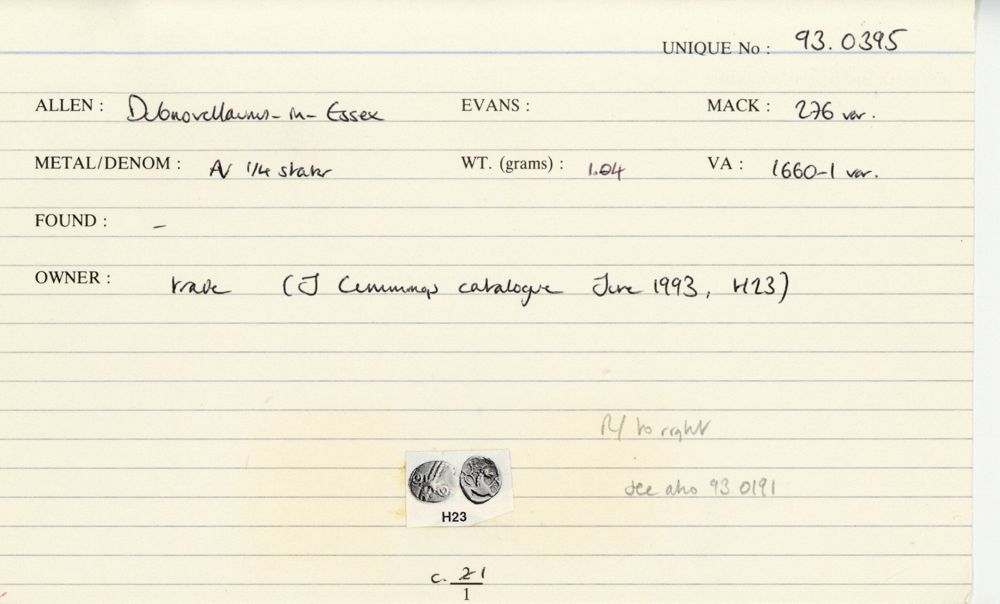 UNIQUE No : 93.0395
ALLEN : Dubnovellaunus-in-Essex EVANS : MACK : 276 var.
METAL/DENOM : AV 1/4 stater WT. (grams) : 1.04 VA : 1660-1 var.
FOUND : –
OWNER : trade (J Cummings catalogue June 1993, H23)
R/ to right
see also 93.0191
H23
c. 21
1